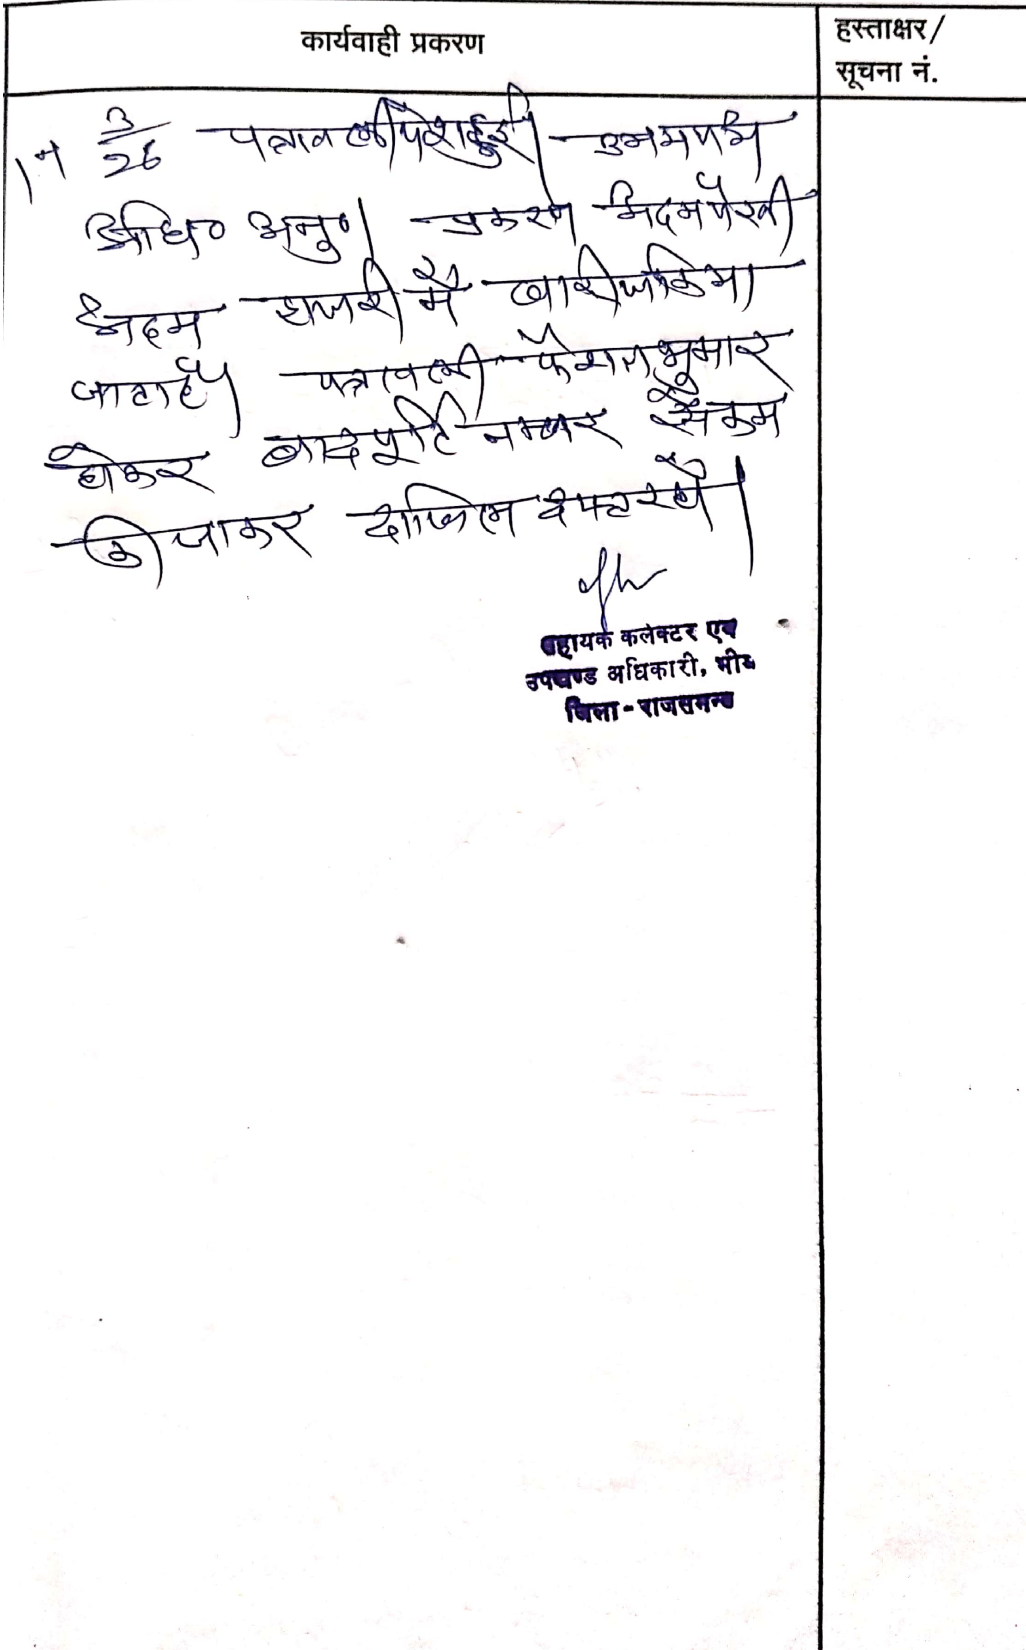 कार्यवाही प्रकरण
हस्ताक्षर/
सूचना नं.
3/26 पत्रावली पेश हुई। उभयपक्ष
अधि० अनु०। प्रकरण अदम पैरवी
अदम हाजरी में खारीज किया
जाता है। पत्रावली फैसल शुमार
होकर बाद पूर्ति नम्बर से कम
की जाकर दाखिल दफ्टर हो।
सहायक कलेक्टर एवं
उपखण्ड अधिकारी, भीम
जिला - राजसमन्द